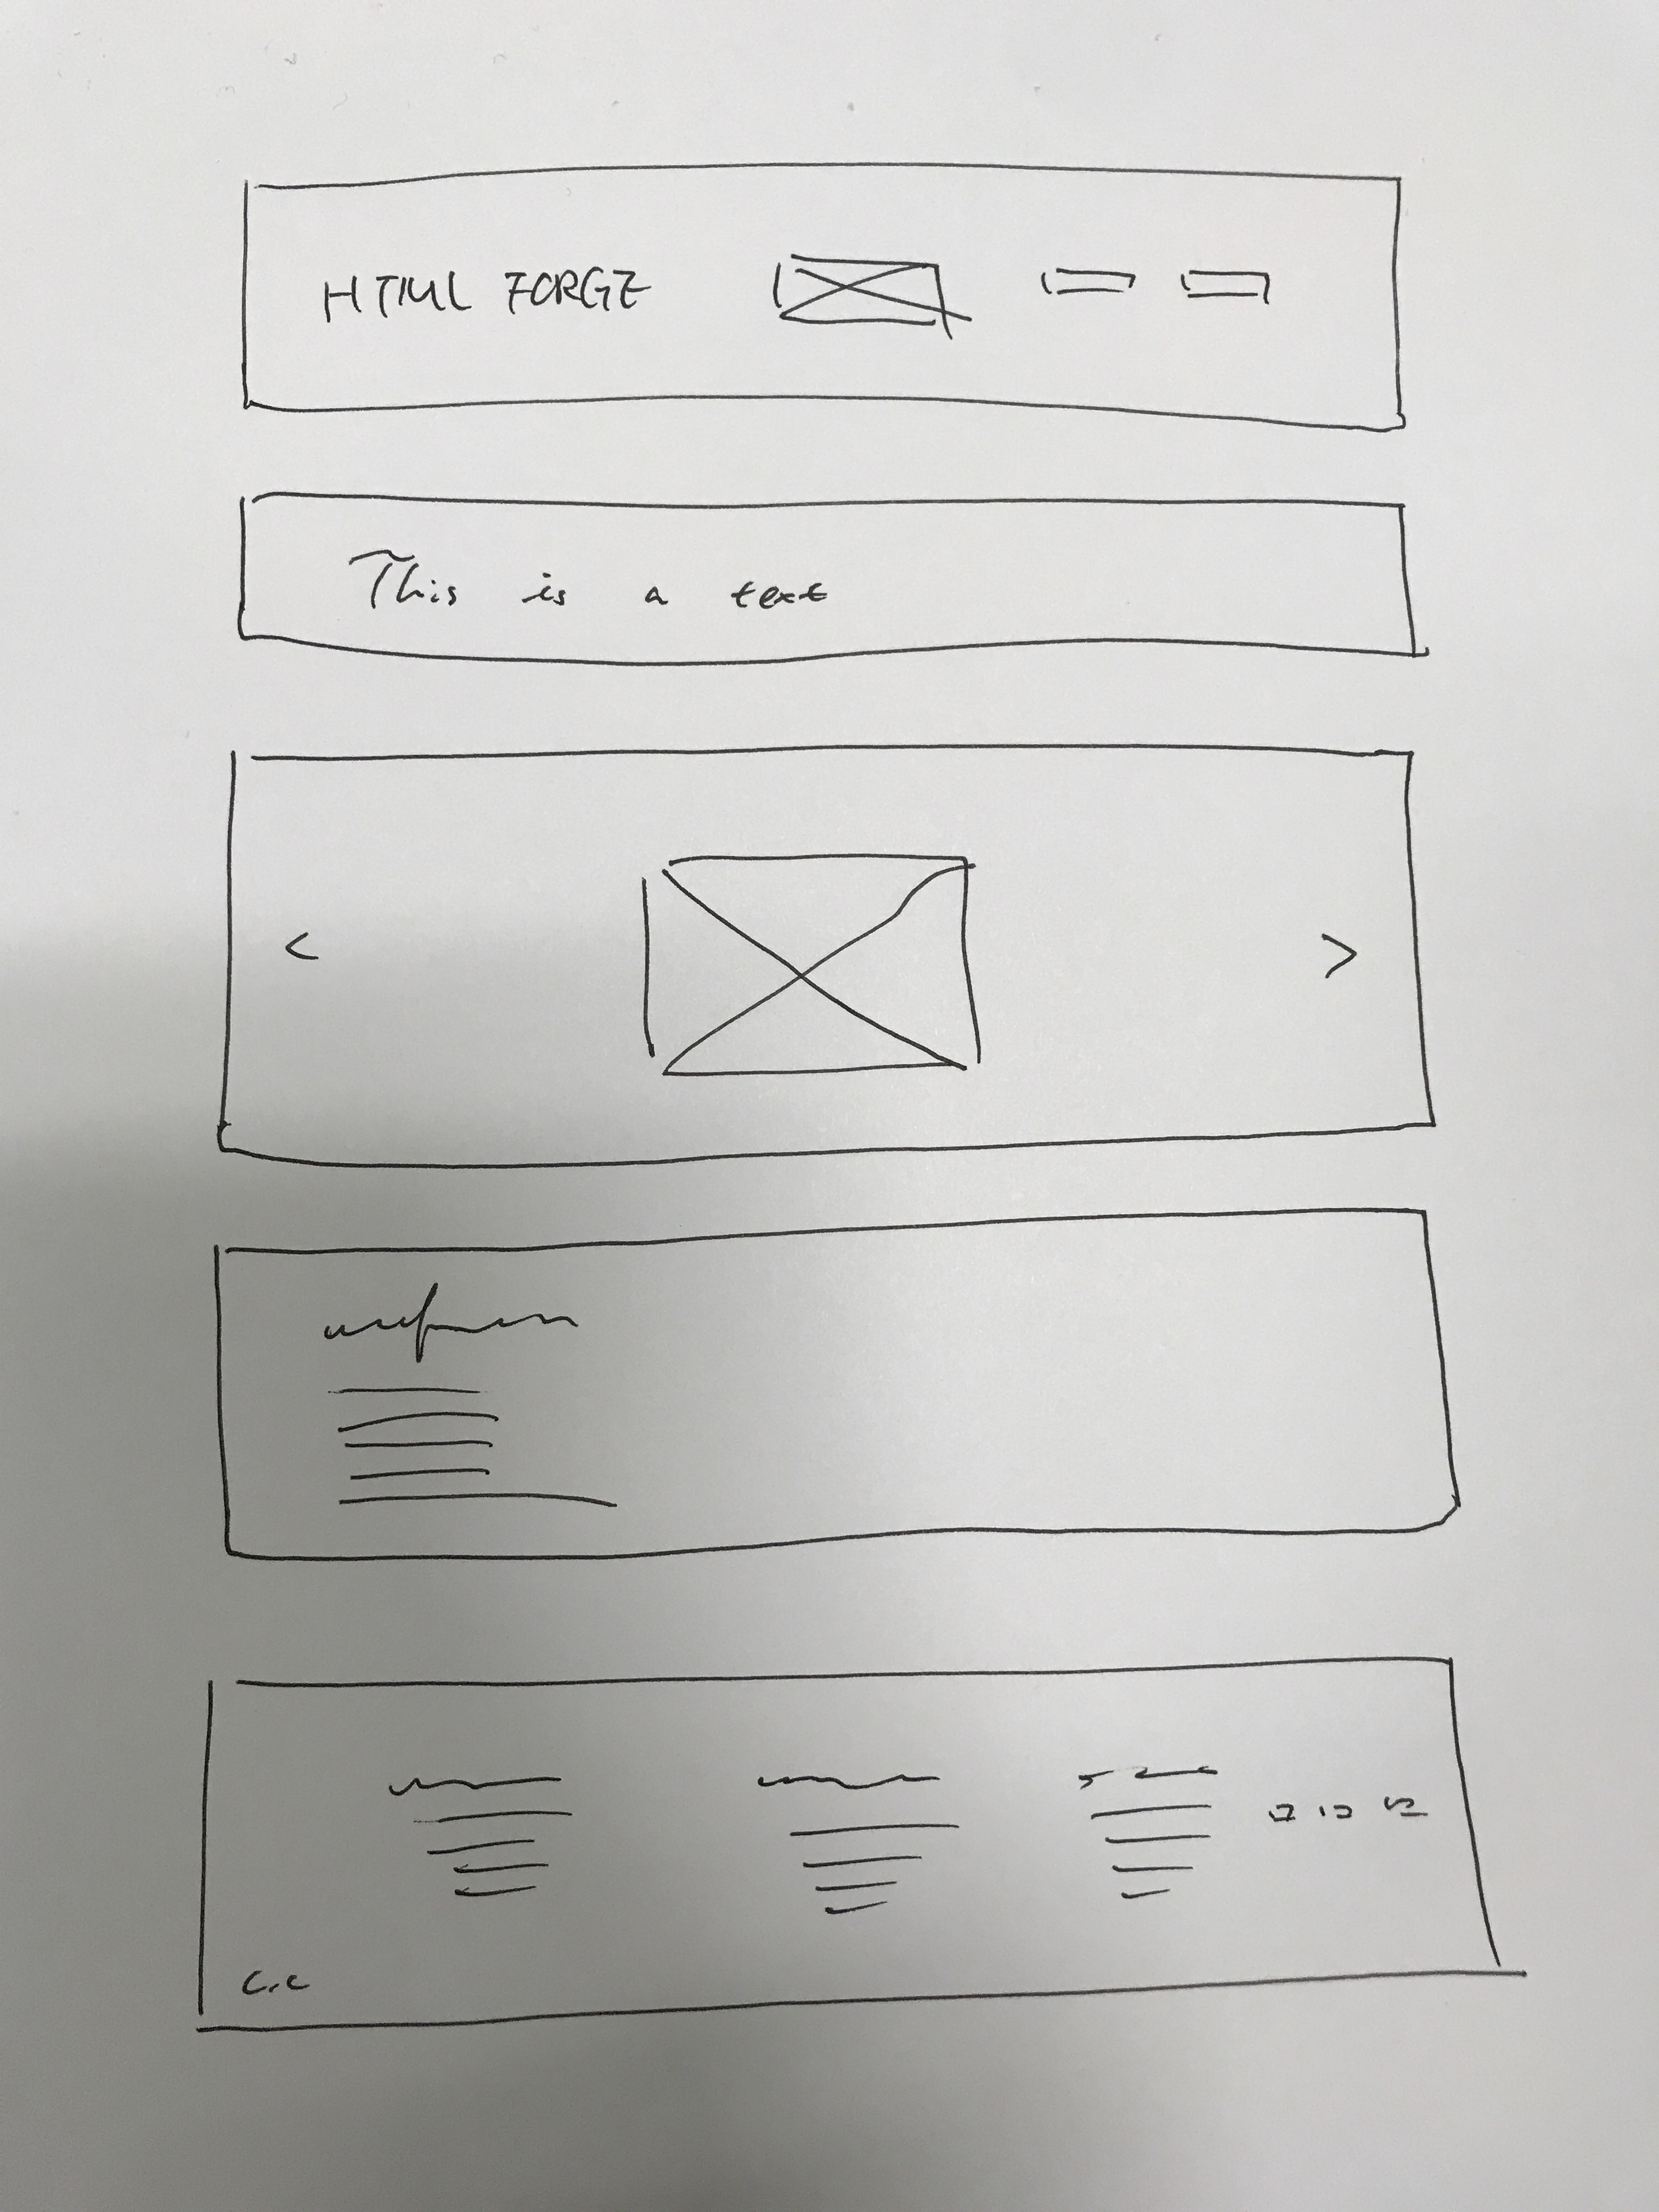 HTML FORGE
This is a text
<
>